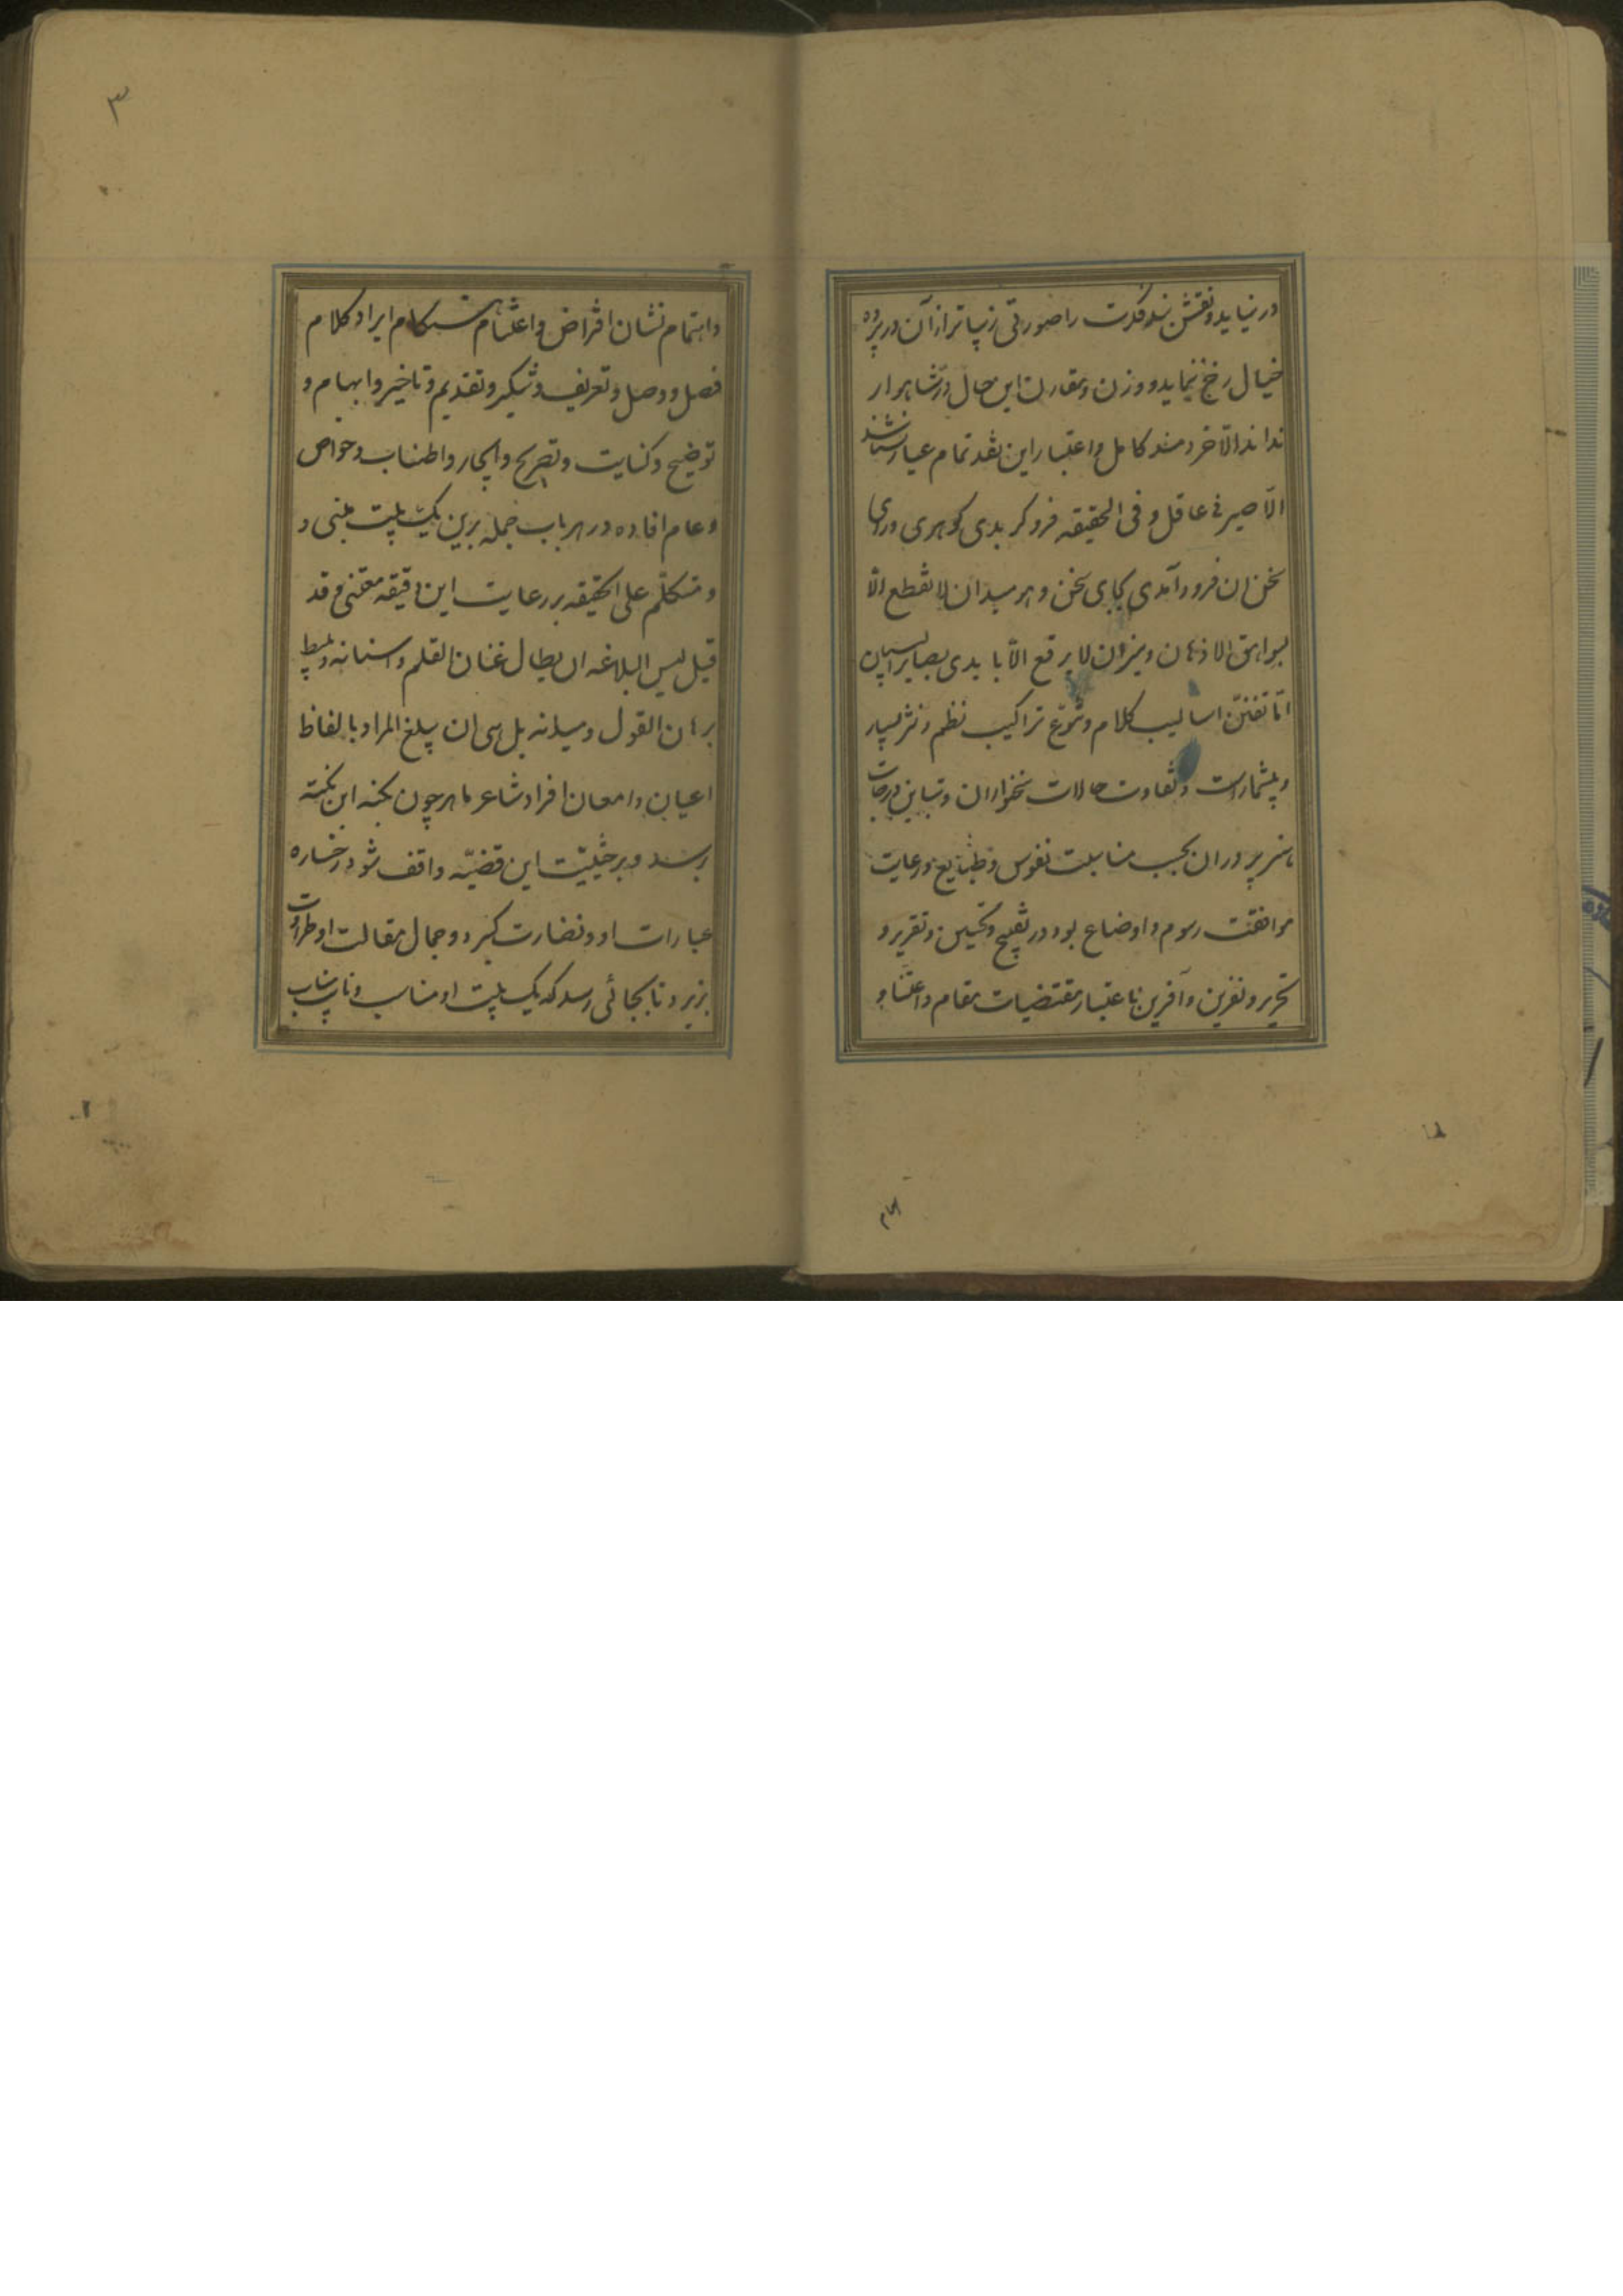 در نیاید و نقش بند فکرت را صورتی زیباتر از آن در پرده
خیال رخ ننماید و وزن و مقدار این حال در شاهوار
نداند الا خردمند کامل و اعتبار این نقد تمام عیار نشناسد
الا صیرفی عاقل و فی الحقیقه فرو کر بدی کوهری ورای
سخن ان فرود آمدی بجای سخن و هر میدان لا تقطع الا
بسوابق الاذهان و میزان لا یرفع الا بایدی بصایر البیان
اما تفنن اسالیب کلام و تنوع تراکیب نظم و نثر بسیار
و بیشمار است و تفاوت حالات سخنوران و تباین درجات
هنرپروران بحسب مناسبت نفوس و طبایع و رعایت
موافقت رسوم و اوضاع بود در تقبیح و تحسین و تقریر و
تحریر و نفرین و آفرین باعتبار مقتضیات مقام و اعتنا و
۳
و اهتمام نشان اغراض و اغتنام هنکام ایراد کلام
فصل و وصل و تعریف و تنکیر و تقدیم و تاخیر و ابهام و
توضیح و کنایت و تصریح و ایجاز و اطناب و خواص
و عام افاده در هر باب جمله برین یک بیت مبنی و
و متکلم علی الحقیقه بر رعایت این دقیقه معتنی و قد
قیل لیس البلاغه ان یطال عنان القلم و اسنانه و یبسط
برهان القول و میدانه بل هی ان یبلغ المراد بالفاظ
اعیان و امعان افراد شاعر ماهر چون بکنه این نکته
رسد و بر حیثیت این قضیه واقف شود رخساره
عبارات او و نضارت کیرد و جمال مقالت او طراوت
پزیرد تا بجائی رسد که یک بیت او مناسب و نایب مناب